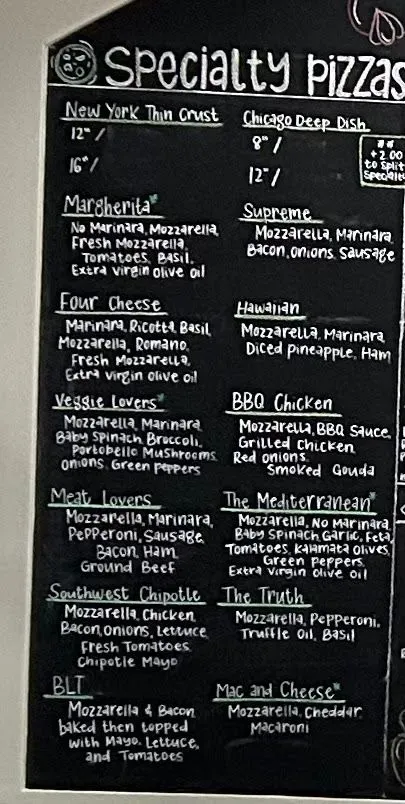 Specialty Pizzas
New York Thin Crust
12" /
16" /
Chicago Deep Dish
8" /
12" /
**
+2.00
to split
Specialty
Margherita*
No Marinara, Mozzarella,
Fresh Mozzarella,
Tomatoes, Basil,
Extra virgin olive oil
Supreme
Mozzarella, Marinara
Bacon, onions, Sausage
Four Cheese
Marinara, Ricotta, Basil,
Mozzarella, Romano,
Fresh Mozzarella,
Extra virgin olive oil
Hawaiian
Mozzarella, Marinara
Diced pineapple, Ham
Veggie Lovers*
Mozzarella, Marinara
Baby Spinach, Broccoli,
Portobello Mushrooms
Onions, Green Peppers
BBQ Chicken
Mozzarella, BBQ Sauce,
Grilled Chicken
Red onions,
Smoked Gouda
Meat Lovers
Mozzarella, Marinara,
Pepperoni, Sausage
Bacon, Ham
Ground Beef
The Mediterranean*
Mozzarella, No Marinara,
Baby Spinach, Garlic, Feta,
Tomatoes, Kalamata Olives,
Green Peppers,
Extra Virgin olive oil
Southwest Chipotle
Mozzarella, Chicken
Bacon, onions, Lettuce
Fresh Tomatoes
Chipotle Mayo
The Truth
Mozzarella, Pepperoni,
Truffle Oil, Basil
BLT
Mozzarella & Bacon
baked then topped
with Mayo, Lettuce,
and Tomatoes
Mac and Cheese*
Mozzarella, Cheddar
Macaroni